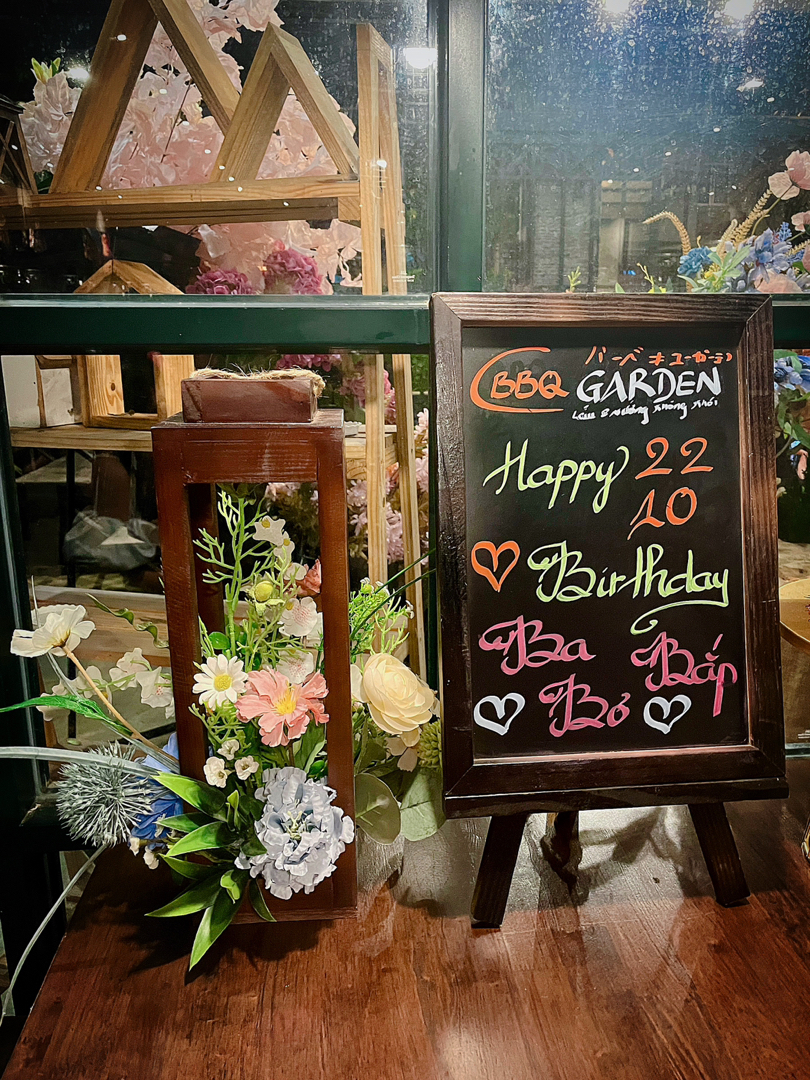 バーベキューガーデン
BBQ GARDEN
Lẩu & nướng không khói
Happy 22
10
Birthday
Ba Bắp
Bơ